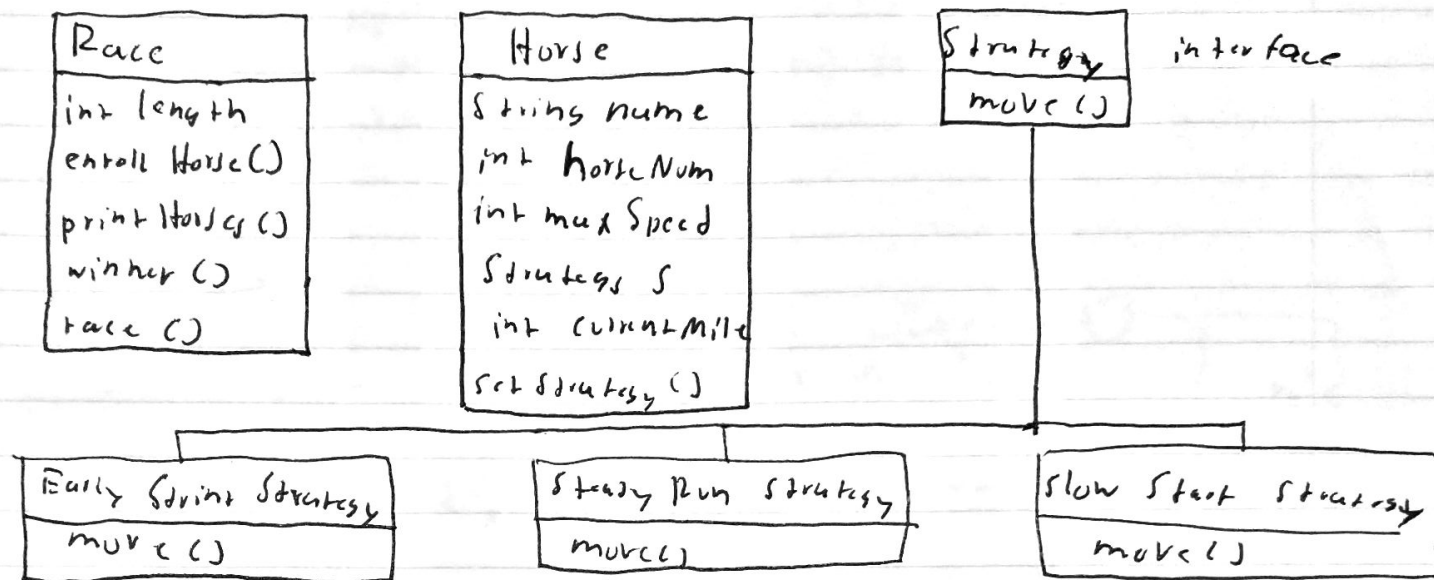 Race
int length
enroll Horse()
print Horses()
winner()
race()
Horse
String name
int horseNum
int maxSpeed
Strategy S
int currentMile
setStrategy()
Strategy
move()
interface
Early Sprint Strategy
move()
Steady Run Strategy
move()
Slow Start Strategy
move()